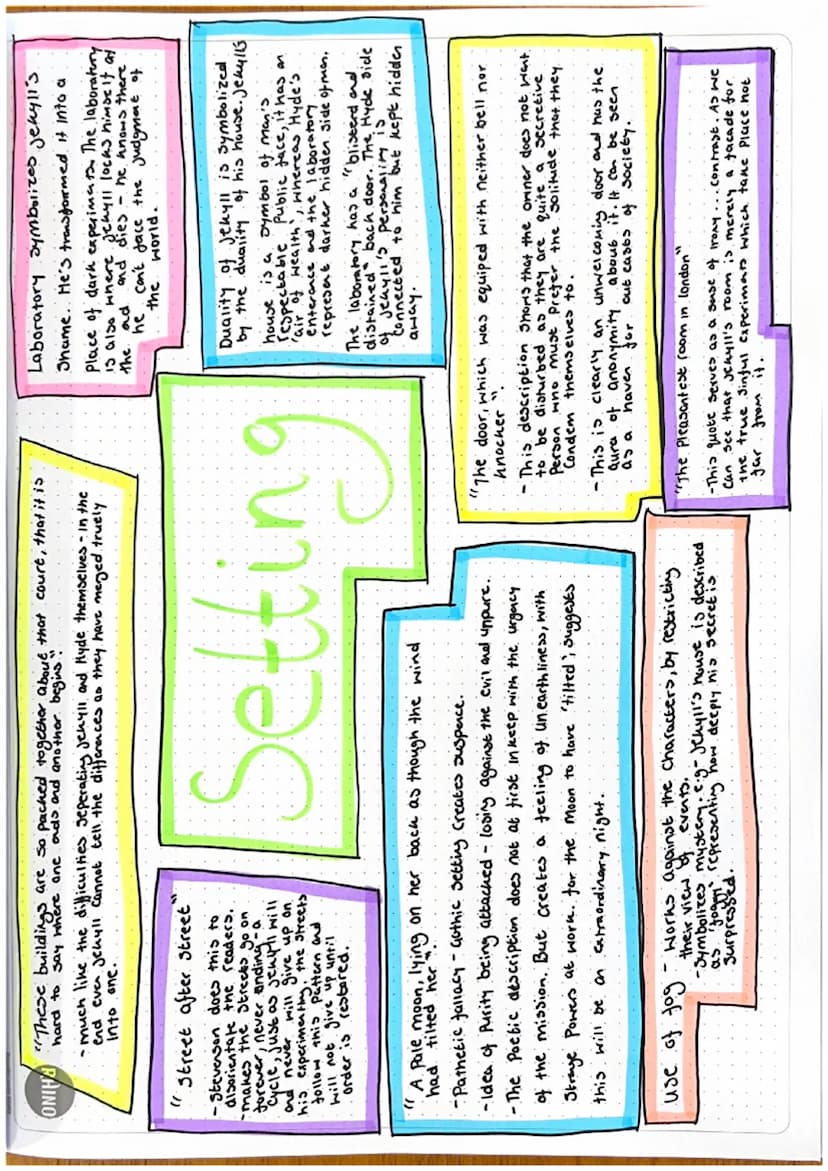 RHINO
"These buildings are so packed together about that court, that it is
hard to say where one ends and another begins".
- much like the difficulties seperating Jekyll and Hyde themselves - in the
end even Jekyll cannot tell the diffrences as they have merged truely
into one.
Laboratory symbolizes Jekyll's
shame. He's transformed it into a
place of dark experiments. The laboratory
is also where Jekyll locks himself at
the end and dies - he knows there
he can't face the judgment of
the world.
"Street after street"
- Stevenson does this to
disorientate the readers.
- makes the streets go on
forever, never ending - a
cycle, just as Jekyll will
and never will give up on
his experimenting, the streets
follow this pattern and
will not give up until
order is restored.
Setting
Duality of Jekyll is symbolized
by the duality of his house. Jekylls
house is a symbol of man's
respectable public face, it has an
'air of wealth', whereas Hyde's
enterance and the laboratory
represent darker hidden side of man.
The laboratory has a "blisterd and
distained" back door. The Hyde side
of Jekyll's personality is
connected to him but kept hidden
away.
"A pale moon, lying on her back as though the wind
had tilted her".
- Pathetic fallacy - Gothic setting creates suspence.
- Idea of purity being attacked - losing against the evil and unpure.
- The poetic description does not at first inkeep with the urgency
of the mission. But creates a feeling of unearthliness, with
strage powers at work. for the moon to have 'tilted', suggests
this will be an extraordinary night.
"The door, which was equiped with neither bell nor
knocker"
- This description shows that the owner does not want
to be disturbed as they are quite a secretive
person who must prefer the solitude that they
condem themselves to.
- This is clearly an unwelcoming door and has the
aura of anonymity about it. It can be seen
as a haven for out casts of society.
use of fog - works against the characters, by restricting
their view of events.
- Symbolizes mystery. e.g - Jekyll's house is described
as 'foggy' representing how deeply his secret is
surpressed.
"The pleasantest room in london"
- This quote serves as a sense of irony ... contrast. As we
can see that Jekyll's room is merely a facade for
the true sinful experiments which take place not
far from it.